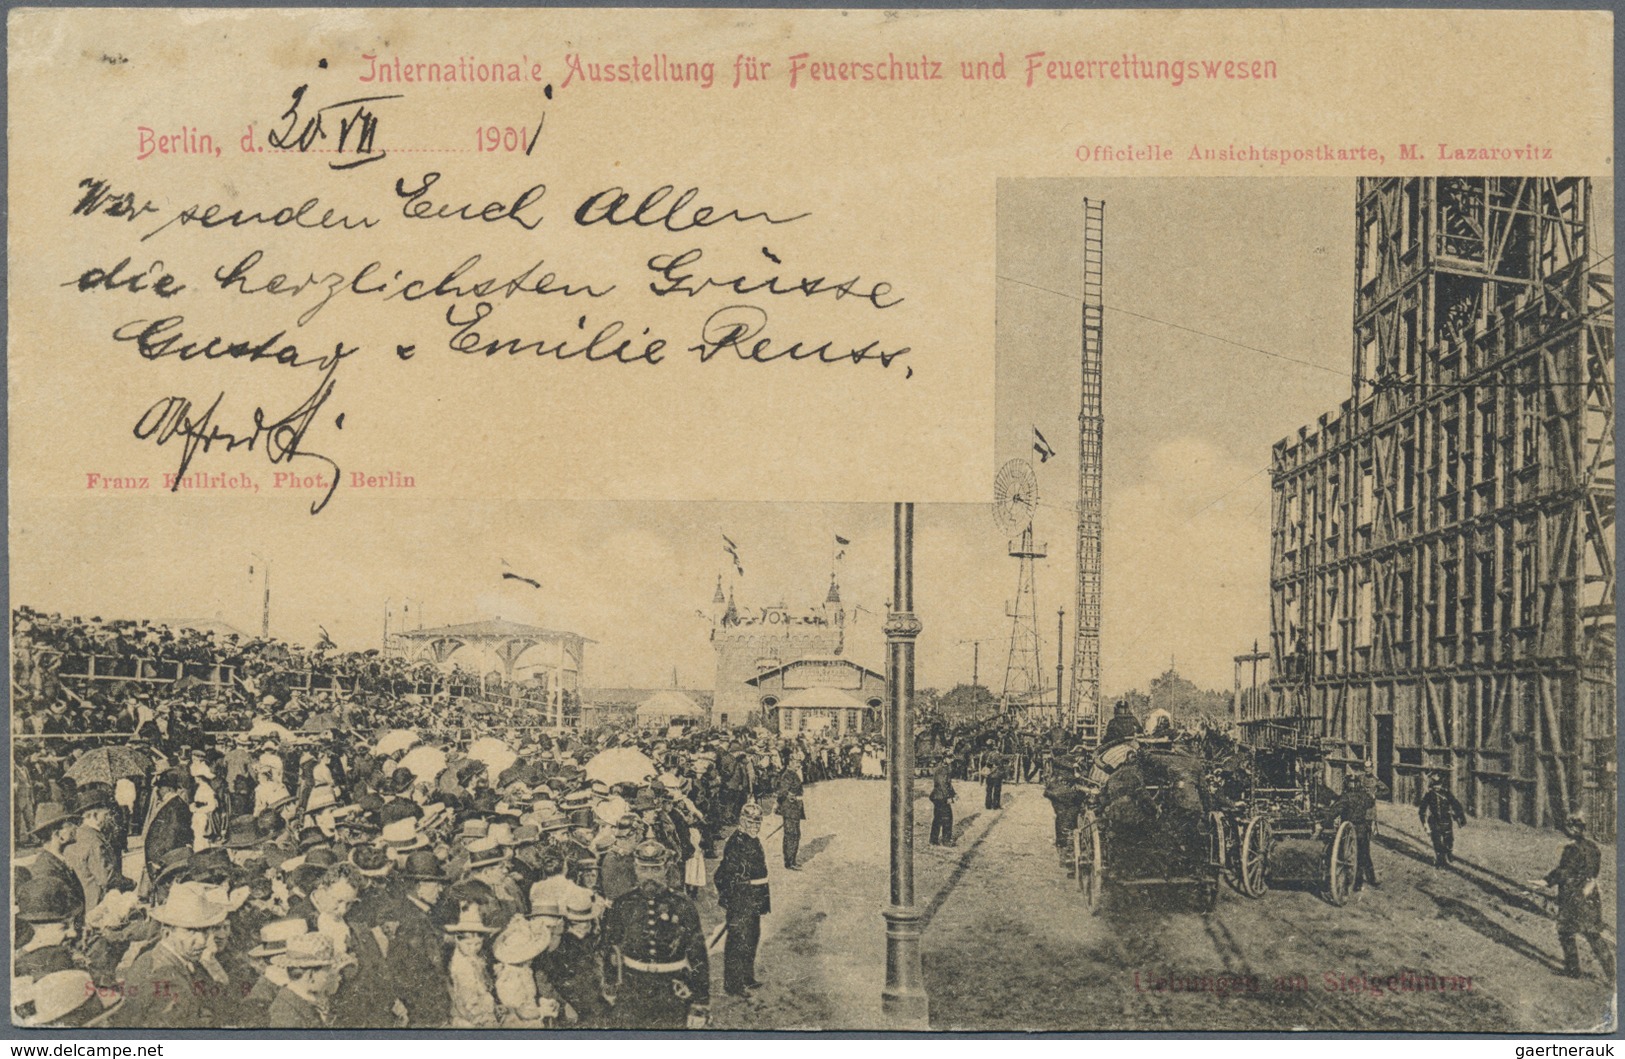 Internationale Ausstellung für Feuerschutz und Feuerrettungswesen
Berlin, d. 30 VII 1901
Officielle Ansichtspostkarte, M. Lazarovitz
Wir senden Euch Allen
die herzlichsten Grüsse
Gustav & Emilie Reuss.
Alfred
Franz Kullrich, Phot., Berlin
Serie II, No.
Uebungen am Steigethurm
www.delcampe.net
gaertnerauk